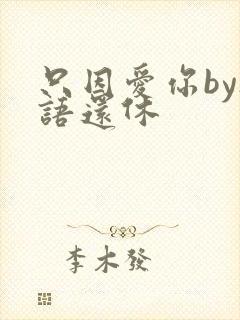 只因愛你by
語還休
李木發